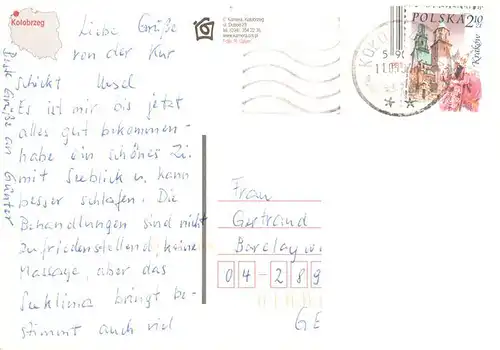 Kołobrzeg
Liebe Grüße
von der Kur
schickt Ursel
Es ist mir bis jetzt
alles gut bekommen-
habe ein schönes Zi.
mit Seeblick u. kann
besser schlafen. Die
Behandlungen sind nicht
zufriedenstellend, keine
Massage, aber das
Seeklima bringt be-
stimmt auch viel
Beste Grüße an Günter
© Kamera, Kołobrzeg
POLSKA 2,10
Kraków
Frau
Gertraud
Barclayw
04-289
GE